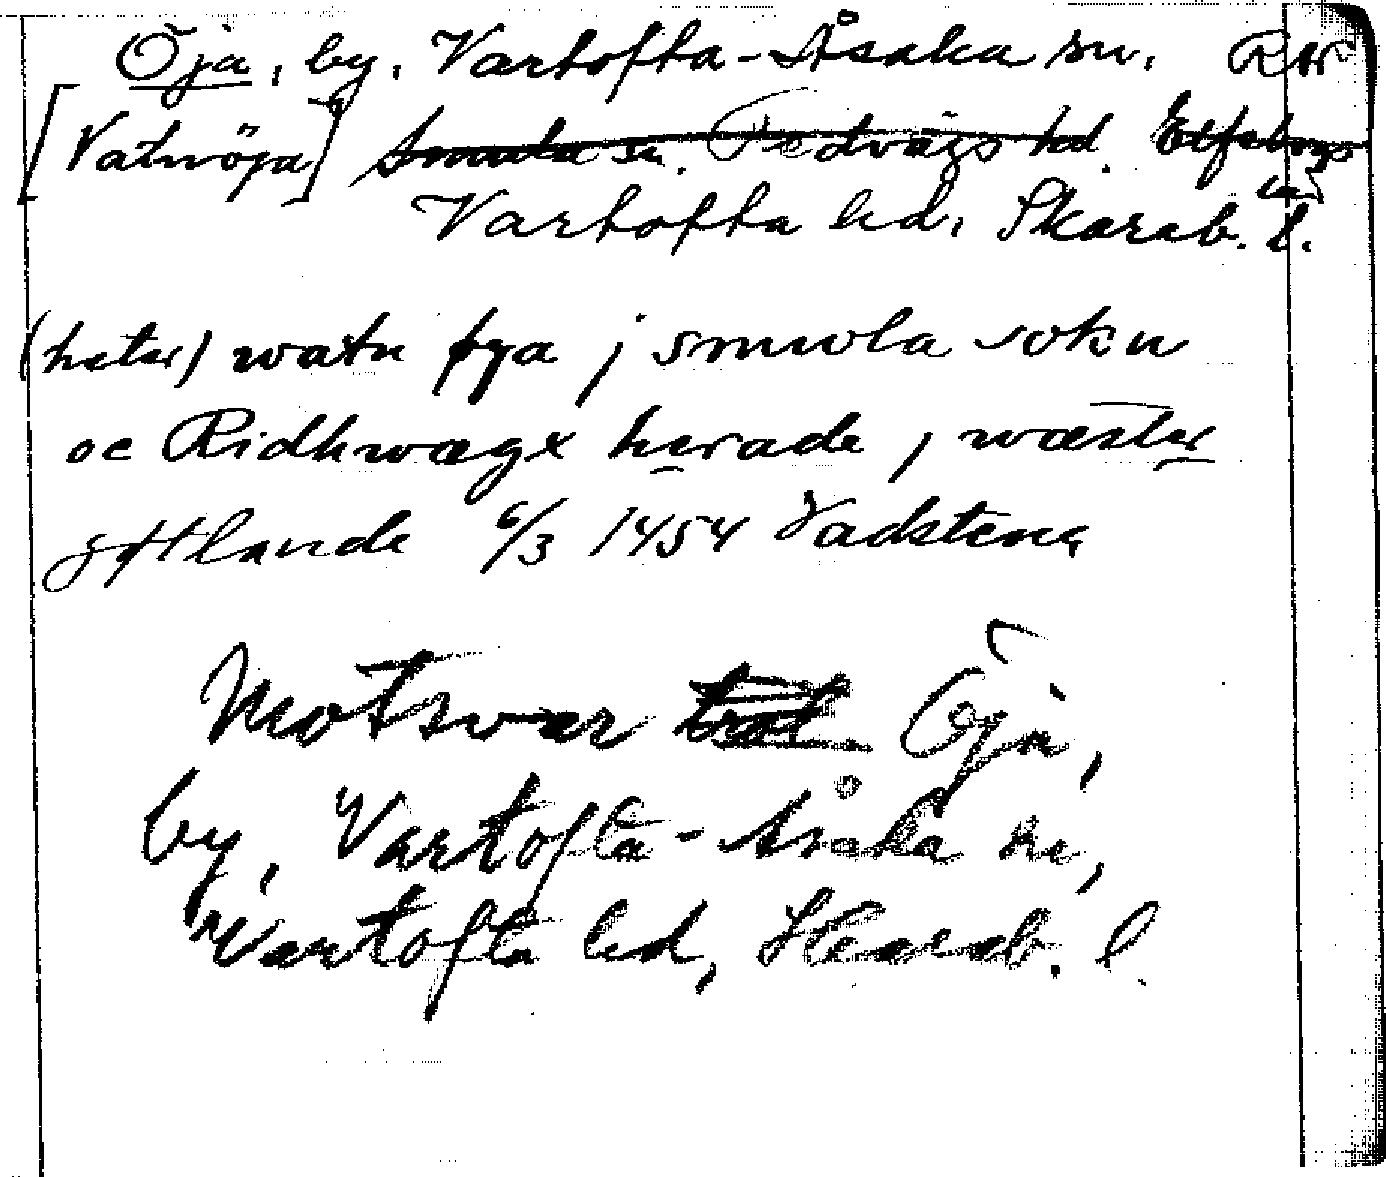 Öja, by, Vartofta-Åsaka sn. RAP
[Vatnöja] Smula sn. Redvägs hd. Elfsborgs
län
Vartofta hd. Skarab. l.
(heter) watn øya j smwla sokn
oc Ridhwægx herade j wæster
gøtlande 6/3 1454 Vadstena
Motsvar trol Öja,
by, Vartofta-Åsaka sn,
Vartofta hd, Skarab. l.